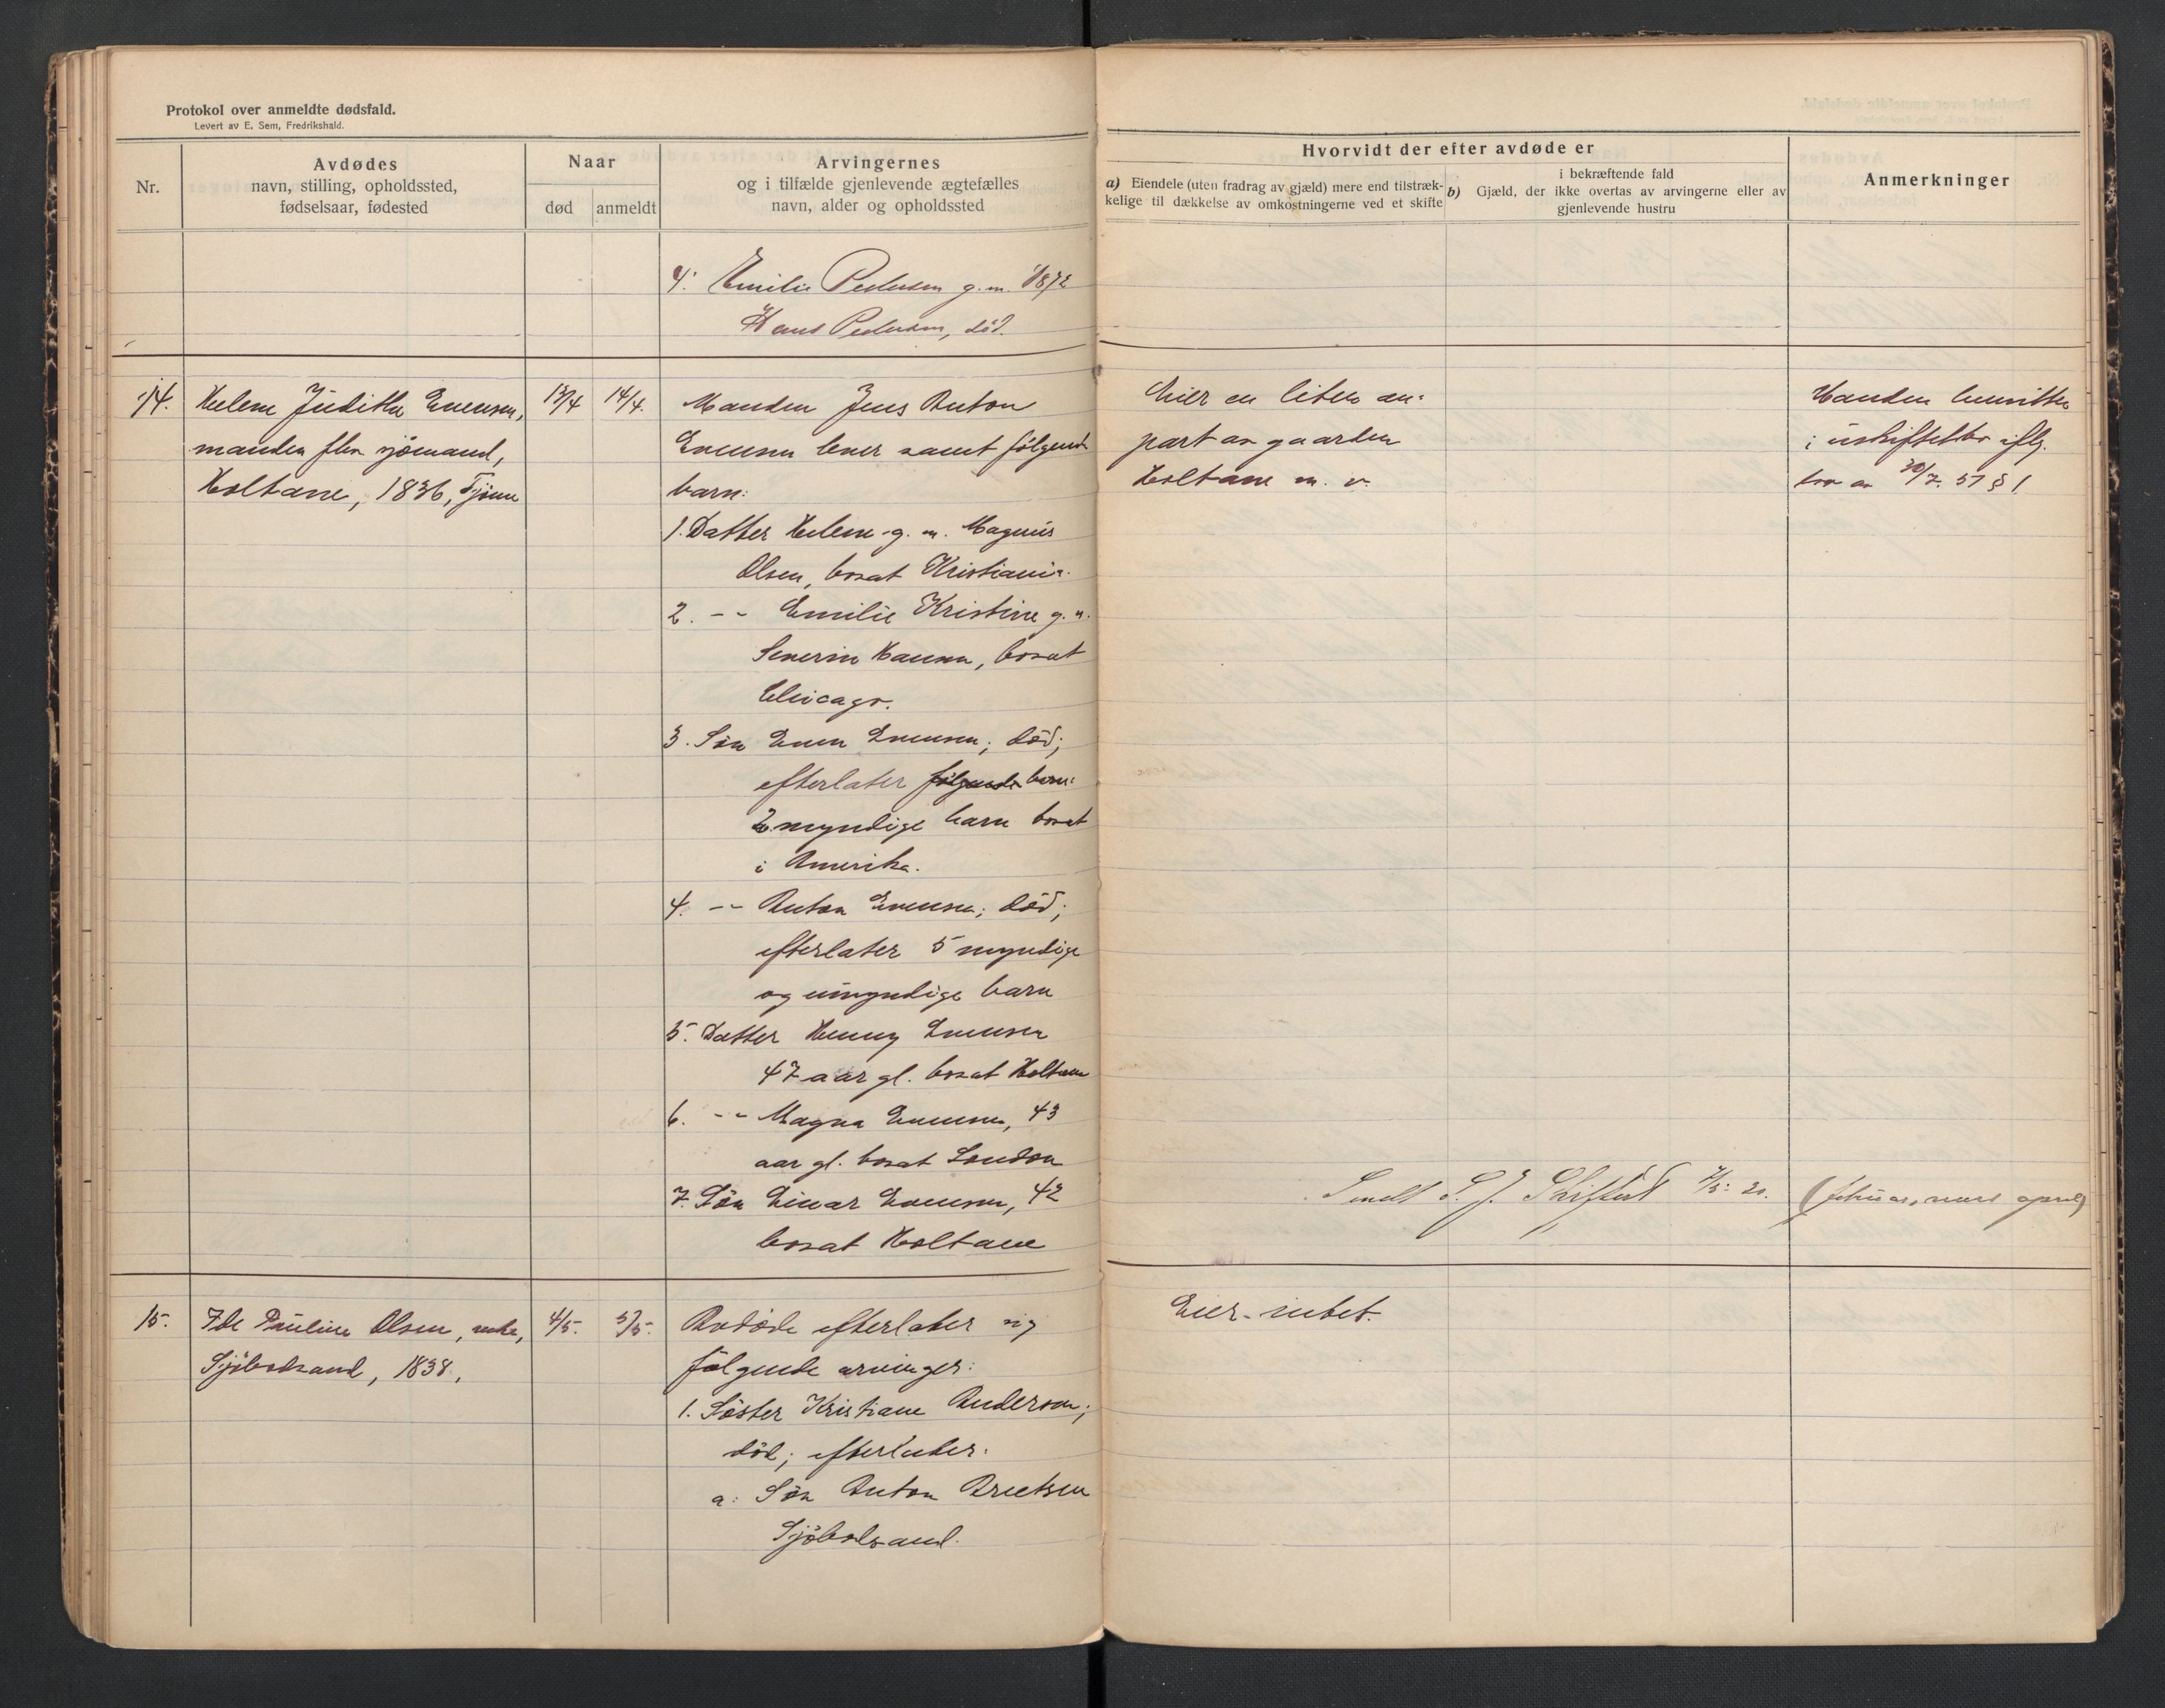 Protokol over anmeldte dødsfald.
Levert av E. Sem, Fredrikshald.
Nr.
Avdødes
navn, stilling, opholdssted,
fødselsaar, fødested
Naar
død
anmeldt
Arvingernes
og i tilfælde gjenlevende ægtefælles
navn, alder og opholdssted
Hvorvidt der efter avdøde er
a) Eiendele (uten fradrag av gjæld) mere end tilstræk-
kelige til dækkelse av omkostningerne ved et skifte
b) Gjæld, der i bekræftende fald
ikke overtas av arvingerne eller av
gjenlevende hustru
Anmerkninger
4. Emilie Pedersen g.m.
Hans Pedersen, død.
14.
Helene Judithe Evensen,
manden fhv. sjømand,
Holtane, 1836, Tjøme
13/4
14/4.
Manden Jens Anton
Evensen lever samt følgende
barn:
1. Datter Helene g. m. Magnus
Olsen, bosat Kristiania.
2. -- Emilie Kristine g. m.
Severin Hansen, bosat
Chicago.
3. Søn Even Evensen; død;
efterlater følgende barn:
2 myndige barn bosat
i Amerika.
4. -- Anton Evensen; død;
efterlater 5 myndige
og umyndige barn
5. Datter Henny Evensen
47 aar gl. bosat Holtane
6. -- Magna Evensen, 43
aar gl. bosat London
7. Søn Einar Evensen, 42
bosat Holtane
Eier en liten an-
part av gaarden
Holtane m. v.
Manden hensitter
i uskiftetbo iflg.
lov av 30/7. 51 § 1.
Sendt S. J. Skifteret 7/5. 20.
(februar, mars april)
15.
Ide Pauline Olsen, enke,
Sjøbodsand, 1838,
4/5.
5/5.
Avdøde efterlater sig
følgende arvinger:
1. Søster Kristiane Anderson;
død; efterlater:
a. Søn Anton Arentsen
Sjøbodsand.
Eier intet.